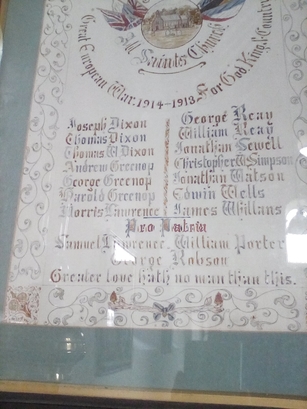 All Saints Church
Great European War. 1914-1918. For God King & Country
Joseph Dixon
Thomas Dixon
Thomas W Dixon
Andrew Greenop
George Greenop
Harold Greenop
Morris Lawrence
George Reay
William Reay
Jonathan Sewell
Christopher W Simpson
Jonathan Watson
Edwin Wells
James Whillans
Pro Patria
Samuel Lawrence. William Porter
George Robson
Greater love hath no man than this.